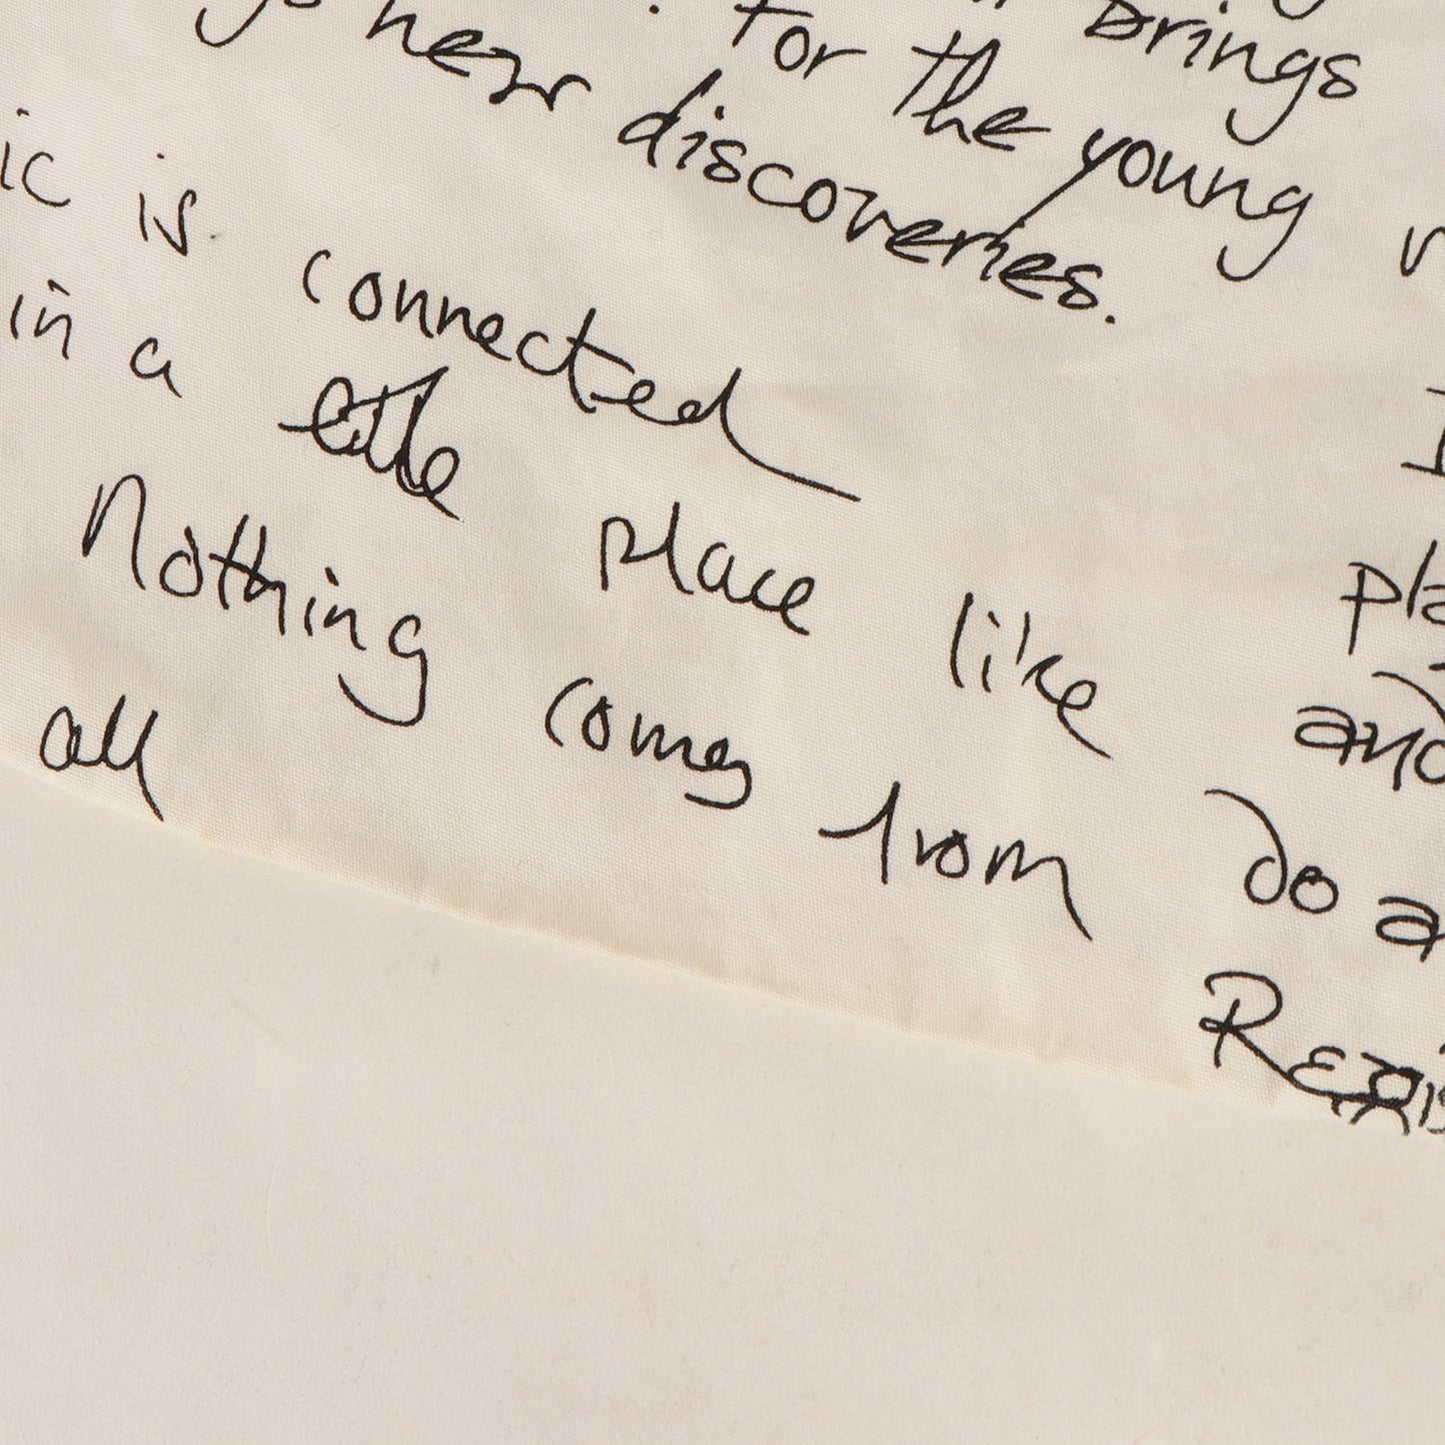 brings
For the young
new discoveries.
ic is connected
in a little place like
Nothing comes from
all
I
pla
and
do a